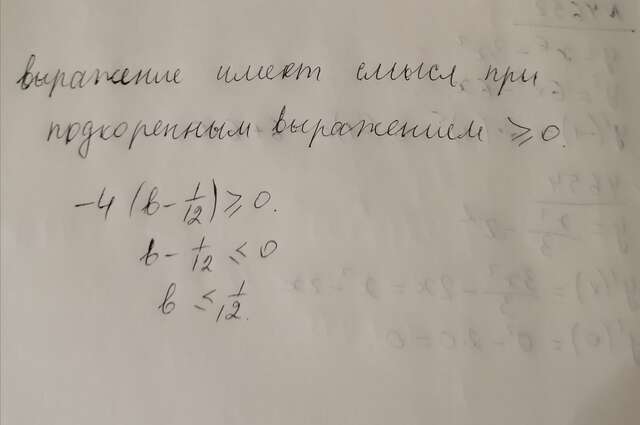 выражение имеет смысл при
подкоренным выражением ≥ 0.
-4 (b - 1/12) ≥ 0.
b - 1/12 ≤ 0
b ≤ 1/12.